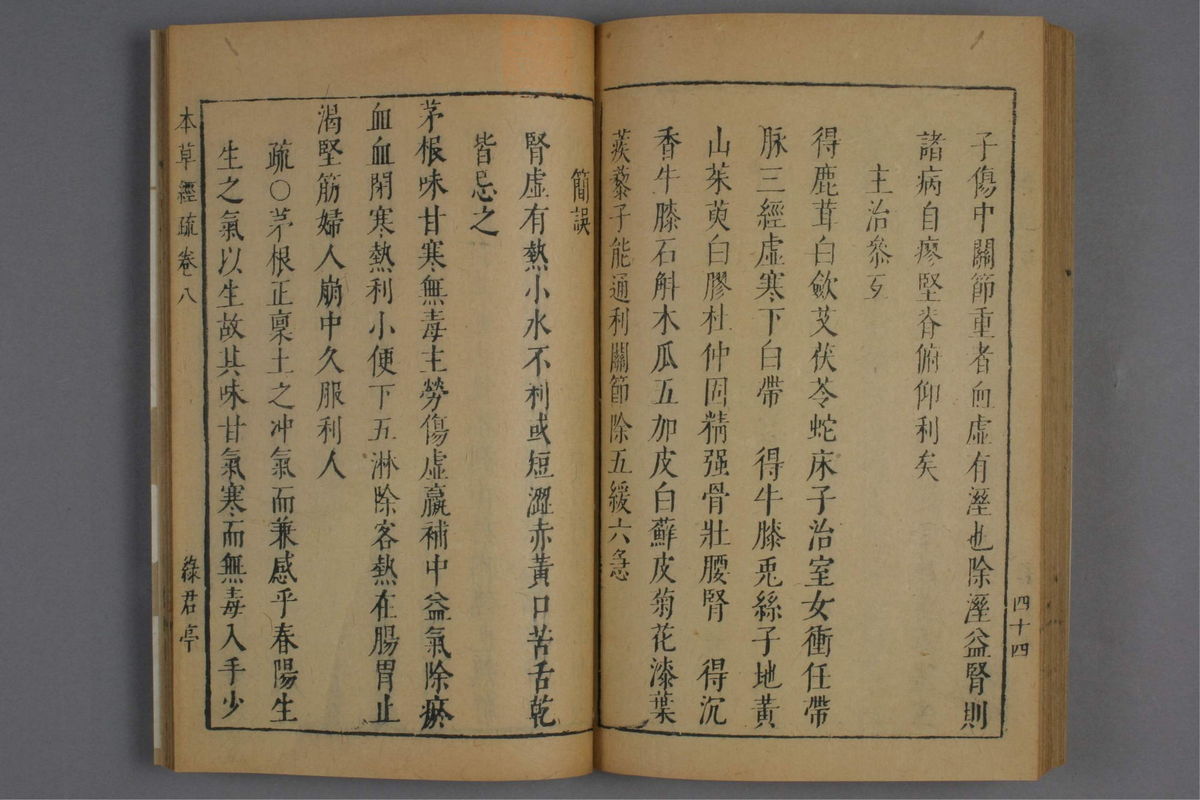 子傷中關節重者血虛有溼也除溼益腎則
諸病自瘳堅脊俯仰利矣
主治參互
得鹿茸白歛艾茯苓蛇床子治室女衝任帶
脉三經虛寒下白帶 得牛膝兎絲子地黃
山茱萸白膠杜仲固精强骨壯腰腎 得沉
香牛膝石斛木瓜五加皮白蘚皮菊花漆葉
蒺藜子能通利關節除五緩六急
四十四
簡誤
腎虛有熱小水不利或短澀赤黃口苦舌乾
皆忌之
茅根味甘寒無毒主勞傷虛羸補中益氣除瘀
血血閉寒熱利小便下五淋除客熱在腸胃止
渴堅筋婦人崩中久服利人
疏○茅根正稟土之冲氣而兼感乎春陽生
生之氣以生故其味甘氣寒而無毒入手少
本草經疏卷八
綠君亭